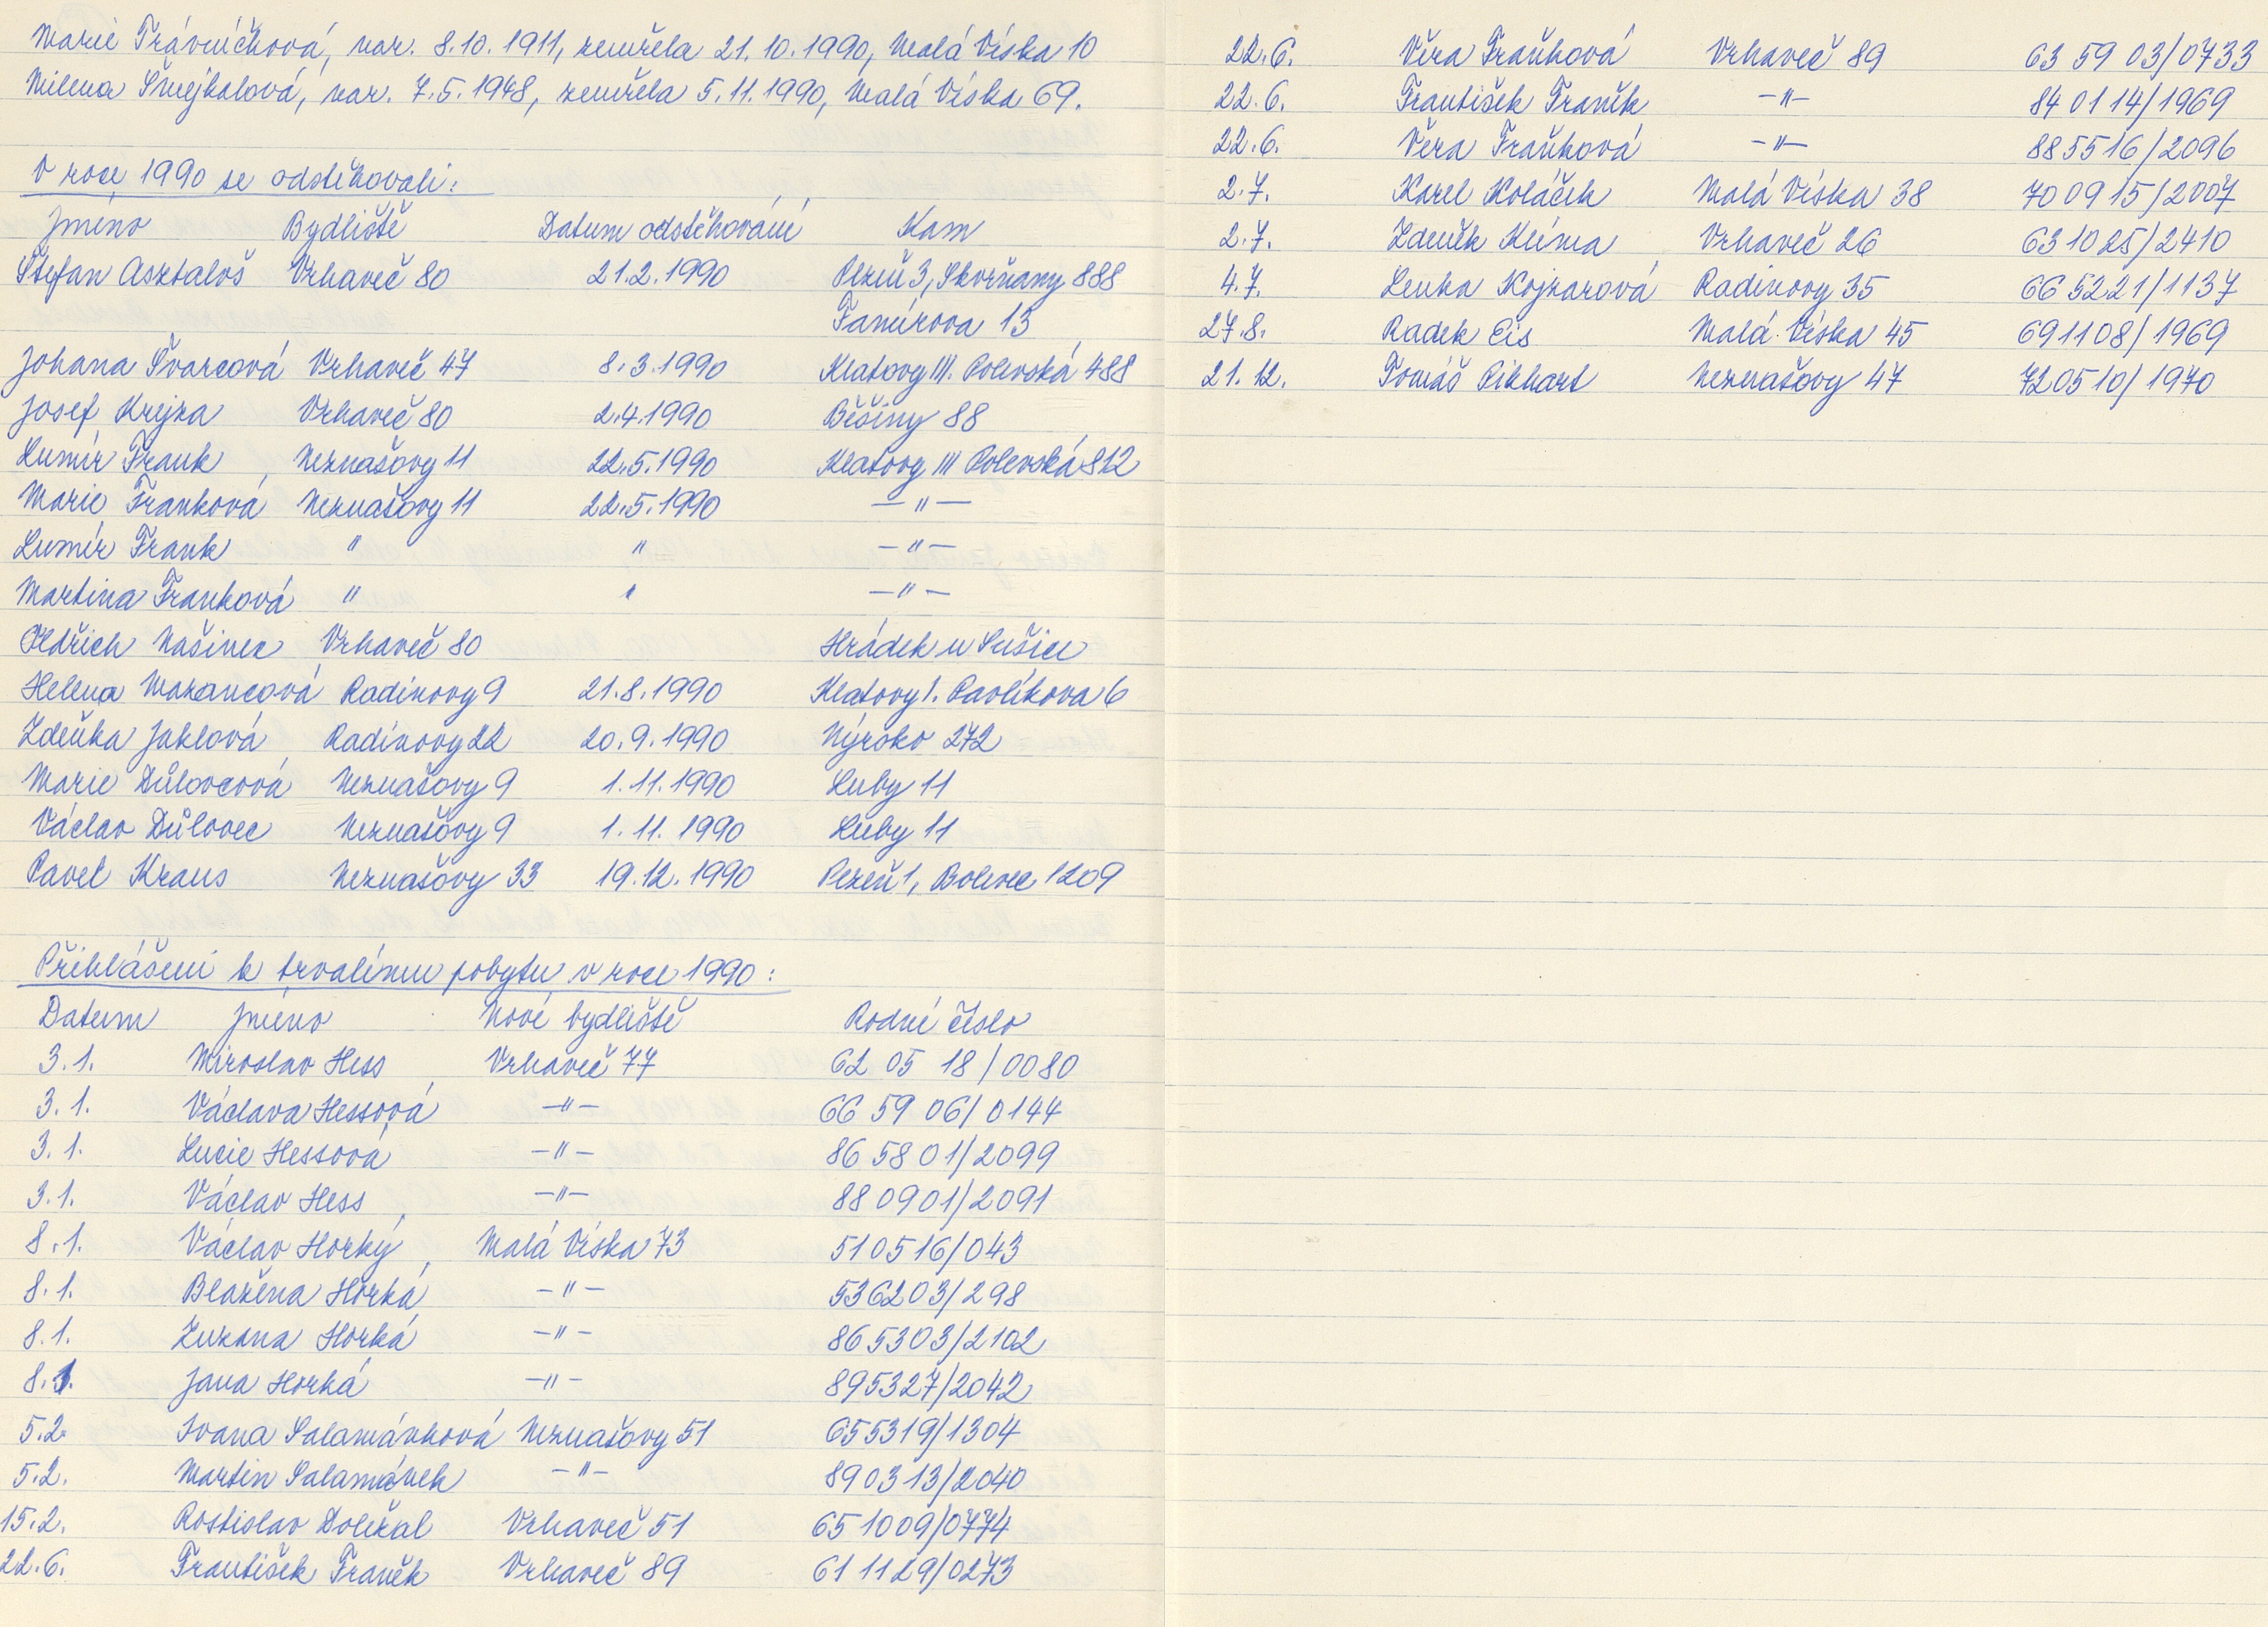 Marie Trávníčková, nar. 8.10.1911, zemřela 21.10.1990, Malá Víska 10
Milena Šmejkalová, nar. 7.5.1948, zemřela 5.11.1990, Malá Víska 69.
V roce 1990 se odstěhovali:
Jméno Bydliště Datum odstěhování Kam
Štefan Asztaloš Vrhaveč 80 21.2.1990 Plzeň 3, Skvrňany 888
Famírova 13
Johana Švarcová Vrhaveč 47 8.3.1990 Klatovy III. Polevská 488
Josef Krejza Vrhaveč 80 2.4.1990 Běšiny 88
Lumír Frank, Neznašovy 11 22.5.1990 Klatovy III Polevská 812
Marie Franková Neznašovy 11 22.5.1990 — " —
Lumír Frank " " — " —
Martina Franková " " — " —
Oldřich Našinec Vrhaveč 80 Hrádek u Sušice
Helena Mazancová Radinovy 9 21.8.1990 Klatovy I. Pavlíkova 6
Zdeňka Jahlová Radinovy 22 20.9.1990 Nýrsko 272
Marie Důlovcová Neznašovy 9 1.11.1990 Luby 11
Václav Důlovec Neznašovy 9 1.11.1990 Luby 11
Pavel Kraus Neznašovy 33 19.12.1990 Plzeň 1, Bolevec 1209
Přihlášeni k trvalému pobytu v roce 1990:
Datum Jméno Nové bydliště Rodné číslo
3.1. Miroslav Hess Vrhaveč 77 62 05 18/0080
3.1. Václava Hessová — " — 66 59 06/0144
3.1. Lucie Hessová — " — 86 58 01/2099
3.1. Václav Hess — " — 88 09 01/2091
8.1. Václav Horký, Malá Víska 73 510516/043
8.1. Blažena Horká — " — 536203/298
8.1. Zuzana Horká — " — 865303/2102
8.1. Jana Horká — " — 895327/2042
5.2. Ivana Salamánková Neznašovy 51 655319/1304
5.2. Martin Salamánek — " — 890313/2040
15.2. Rostislav Doležal Vrhaveč 51 651009/0774
22.6. František Franěk Vrhaveč 89 611129/0273
22.6. Věra Fraňková Vrhaveč 89 63 59 03/0733
22.6. František Franěk — " — 84 01 14/1969
22.6. Věra Fraňková — " — 885516/2096
2.7. Karel Koláček Malá Víska 38 700915/2007
2.7. Zdeněk Klíma Vrhaveč 26 631025/2410
4.7. Lenka Kojzarová Radinovy 35 665221/1137
27.8. Radek Eis Malá Víska 45 691108/1969
21.12. Tomáš Pikhart Neznašovy 47 720510/1970